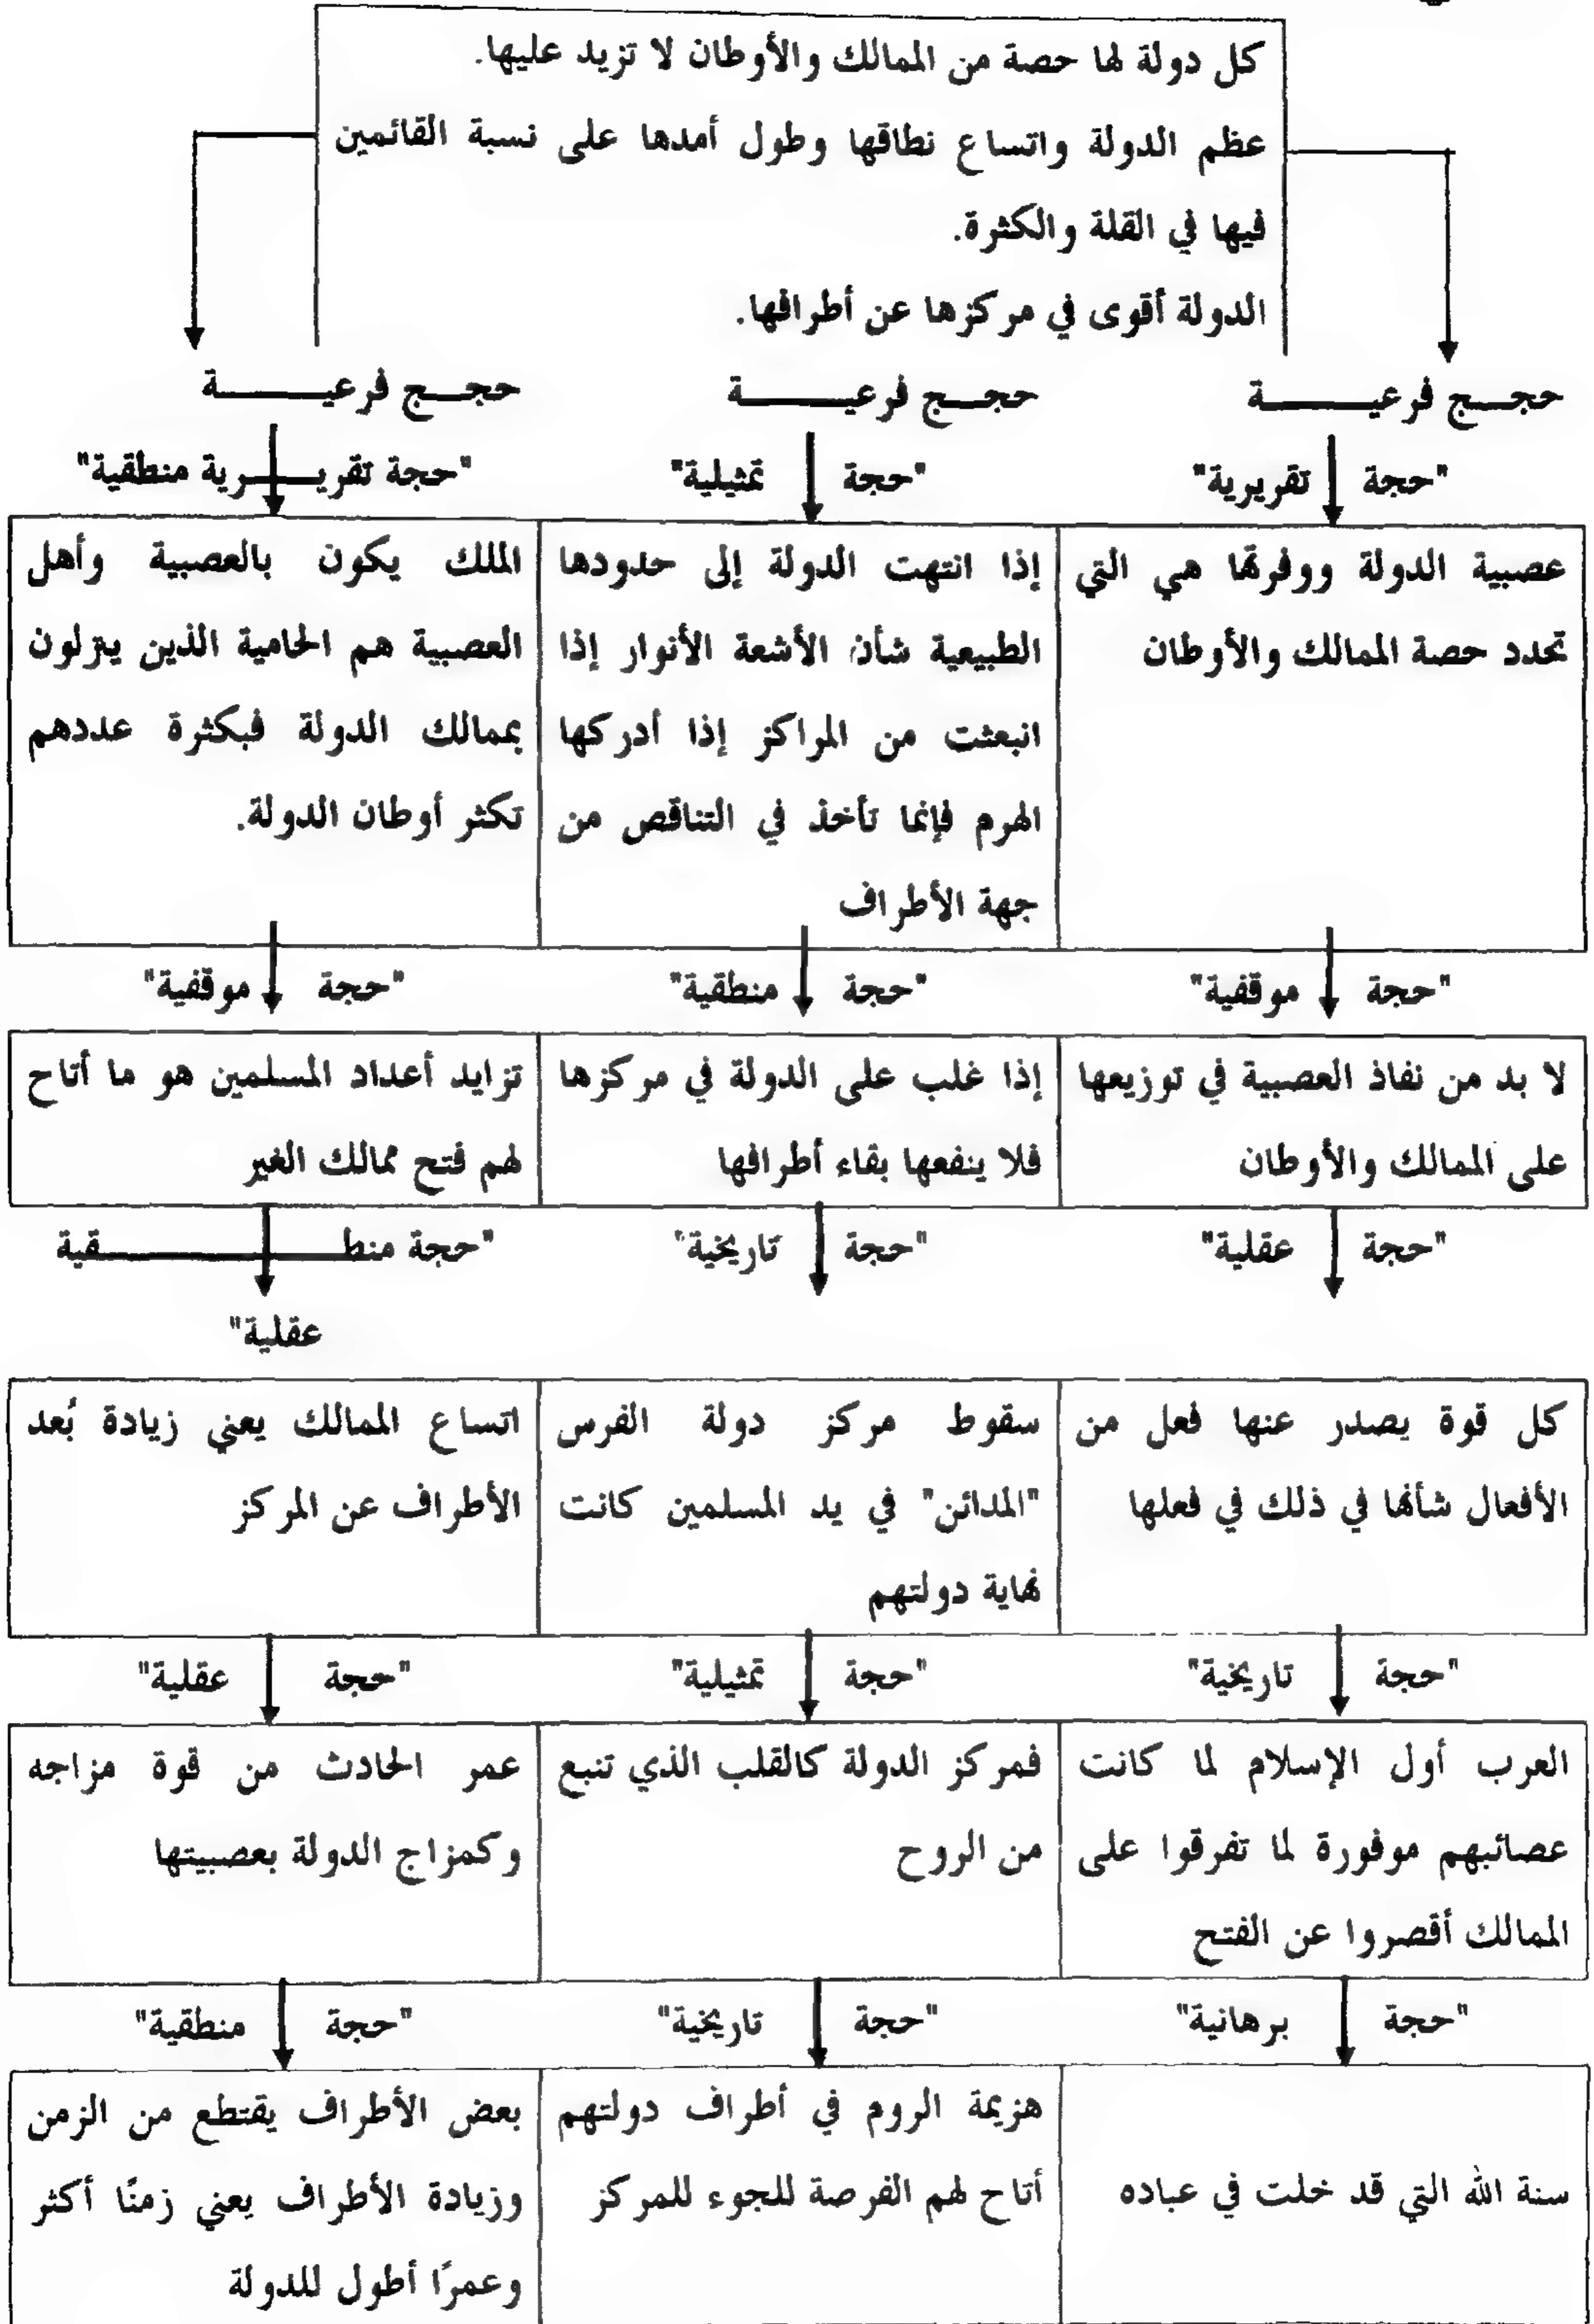 كل دولة لها حصة من الممالك والأوطان لا تزيد عليها.
عظم الدولة واتساع نطاقها وطول أمدها على نسبة القائمين
فيها في القلة والكثرة.
الدولة أقوى في مركزها عن أطرافها.
حجج فرعية
"حجة تقريرية"
عصبية الدولة ووفرتها هي التي
تحدد حصة الممالك والأوطان
"حجة موقفية"
لا بد من نفاذ العصبية في توزيعها
على الممالك والأوطان
"حجة عقلية"
كل قوة يصدر عنها فعل من
الأفعال شأنها في ذلك في فعلها
"حجة تاريخية"
العرب أول الإسلام لما كانت
عصائبهم موفورة لما تفرقوا على
الممالك أقصروا عن الفتح
"حجة برهانية"
سنة الله التي قد خلت في عباده
حجج فرعية
"حجة تمثيلية"
إذا انتهت الدولة إلى حدودها
الطبيعية شأن الأشعة الأنوار إذا
انبعثت من المراكز إذا أدركها
الهرم فإنما تأخذ في التناقص من
جهة الأطراف
"حجة منطقية"
إذا غلب على الدولة في مركزها
فلا ينفعها بقاء أطرافها
"حجة تاريخية"
سقوط مركز دولة الفرس
"المدائن" في يد المسلمين كانت
نهاية دولتهم
"حجة تمثيلية"
فمركز الدولة كالقلب الذي تنبع
من الروح
"حجة تاريخية"
هزيمة الروم في أطراف دولتهم
أتاح لهم الفرصة للجوء للمركز
حجج فرعية
"حجة تقريرية منطقية"
الملك يكون بالعصبية وأهل
العصبية هم الحامية الذين ينزلون
بممالك الدولة فبكثرة عددهم
تكثر أوطان الدولة.
"حجة موقفية"
تزايد أعداد المسلمين هو ما أتاح
لهم فتح ممالك الغير
"حجة منطقية
عقلية"
اتساع الممالك يعني زيادة بُعد
الأطراف عن المركز
"حجة عقلية"
عمر الحادث من قوة مزاجه
وكمزاج الدولة بعصبيتها
"حجة منطقية"
بعض الأطراف يقتطع من الزمن
وزيادة الأطراف يعني زمنًا أكثر
وعمرًا أطول للدولة